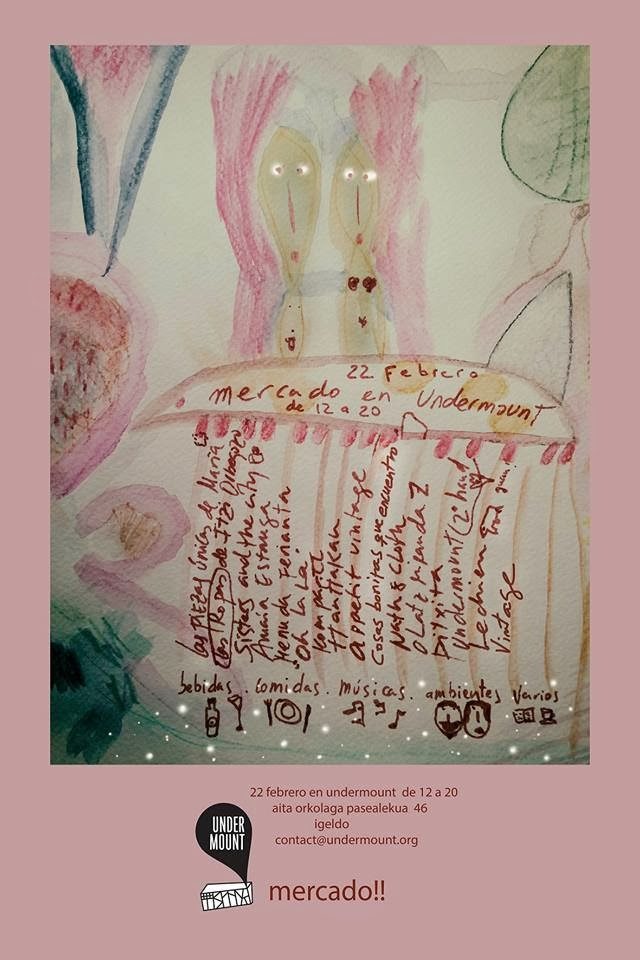 22 Febrero
mercado en Undermount
de 12 a 20
Las PIEZAS Únicas de María
Las Ropas de
Sisters and the city
Amaia
Menuda Feriantа
Oh La La!
Komparte
appétit vintage
Cosas bonitas que encuentro
& Cloth
Olatz
Pitxita
Undermount (2º hand)
Lechien
Vintage
bebidas. Comidas. Músicas. ambientes varios
22 febrero en undermount de 12 a 20
aita orkolaga pasealekua 46
igeldo
contact@undermount.org
UNDER
MOUNT
mercado!!